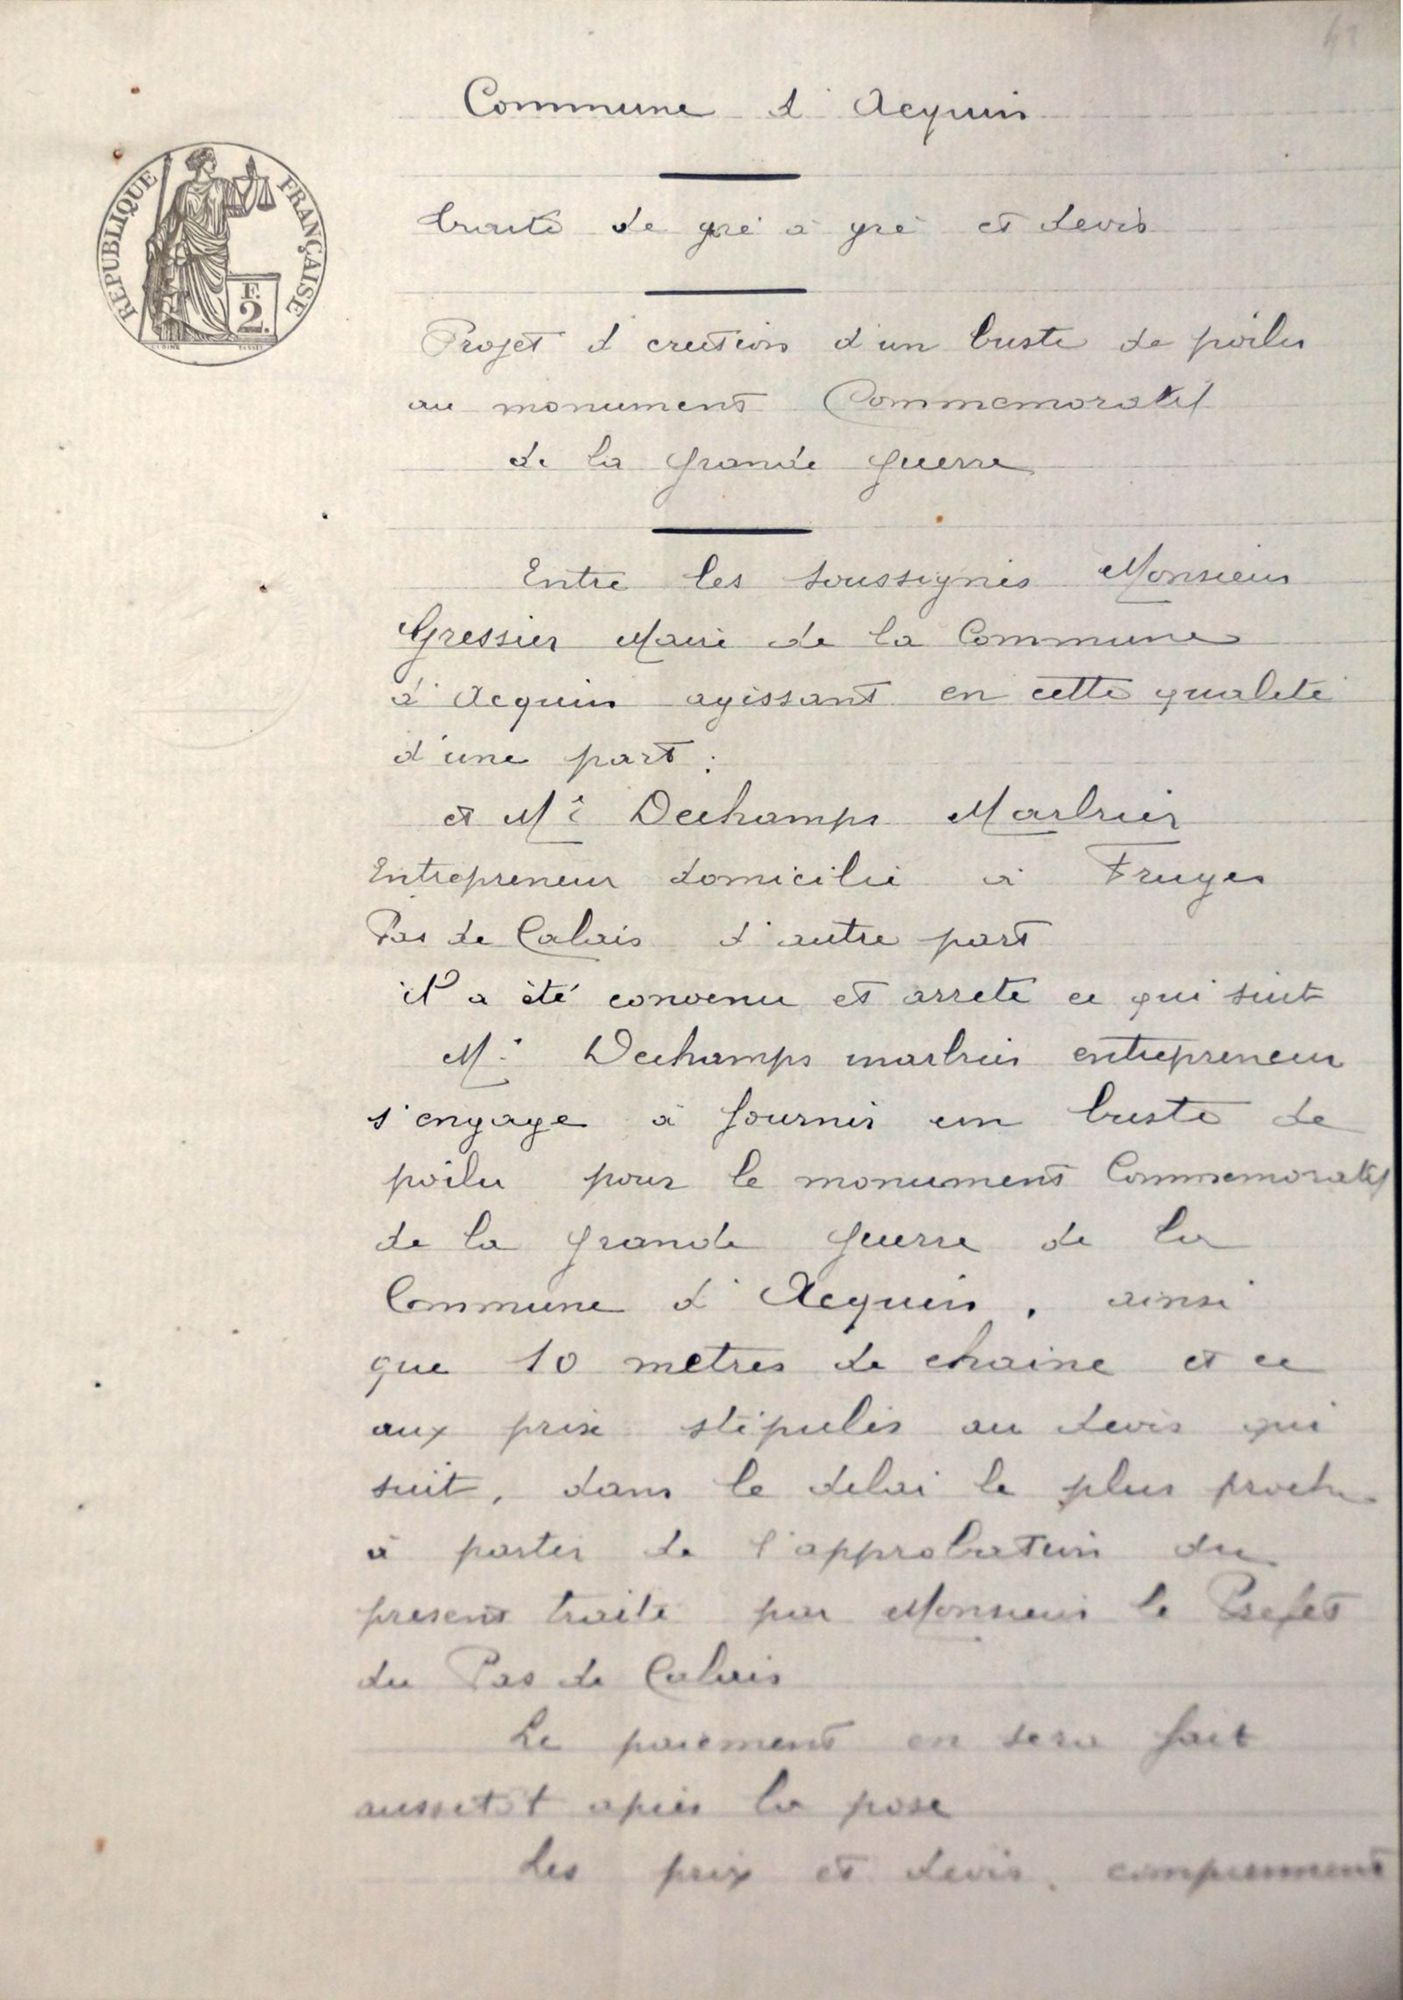 Commune d'Acquin
RÉPUBLIQUE FRANÇAISE
F.
2.
traité de gré à gré et devis
Projet d'erection d'un buste de poilu
au monument Commemoratif
de la grande guerre
Entre les soussignés Monsieur
Gressier Maire de la Commune
d'Acquin agissant en cette qualité
d'une part :
et Mr Dechamps Marbrier
Entrepreneur domicilié à Fruges
Pas de Calais d'autre part
il a été convenu et arrete ce qui suit
Mr Dechamps marbrier entrepreneur
s'engage à fournir un buste de
poilu pour le monument Commemoratif
de la grande guerre de la
Commune d'Acquin, ainsi
que 10 metres de chaine et ce
aux prix stipulés au devis qui
suit, dans le delai le plus proche
à partir de l'approbation du
present traité par Monsieur le Prefet
du Pas de Calais
Le paiement en sera fait
aussitôt après la pose
Les prix et devis, comprennent